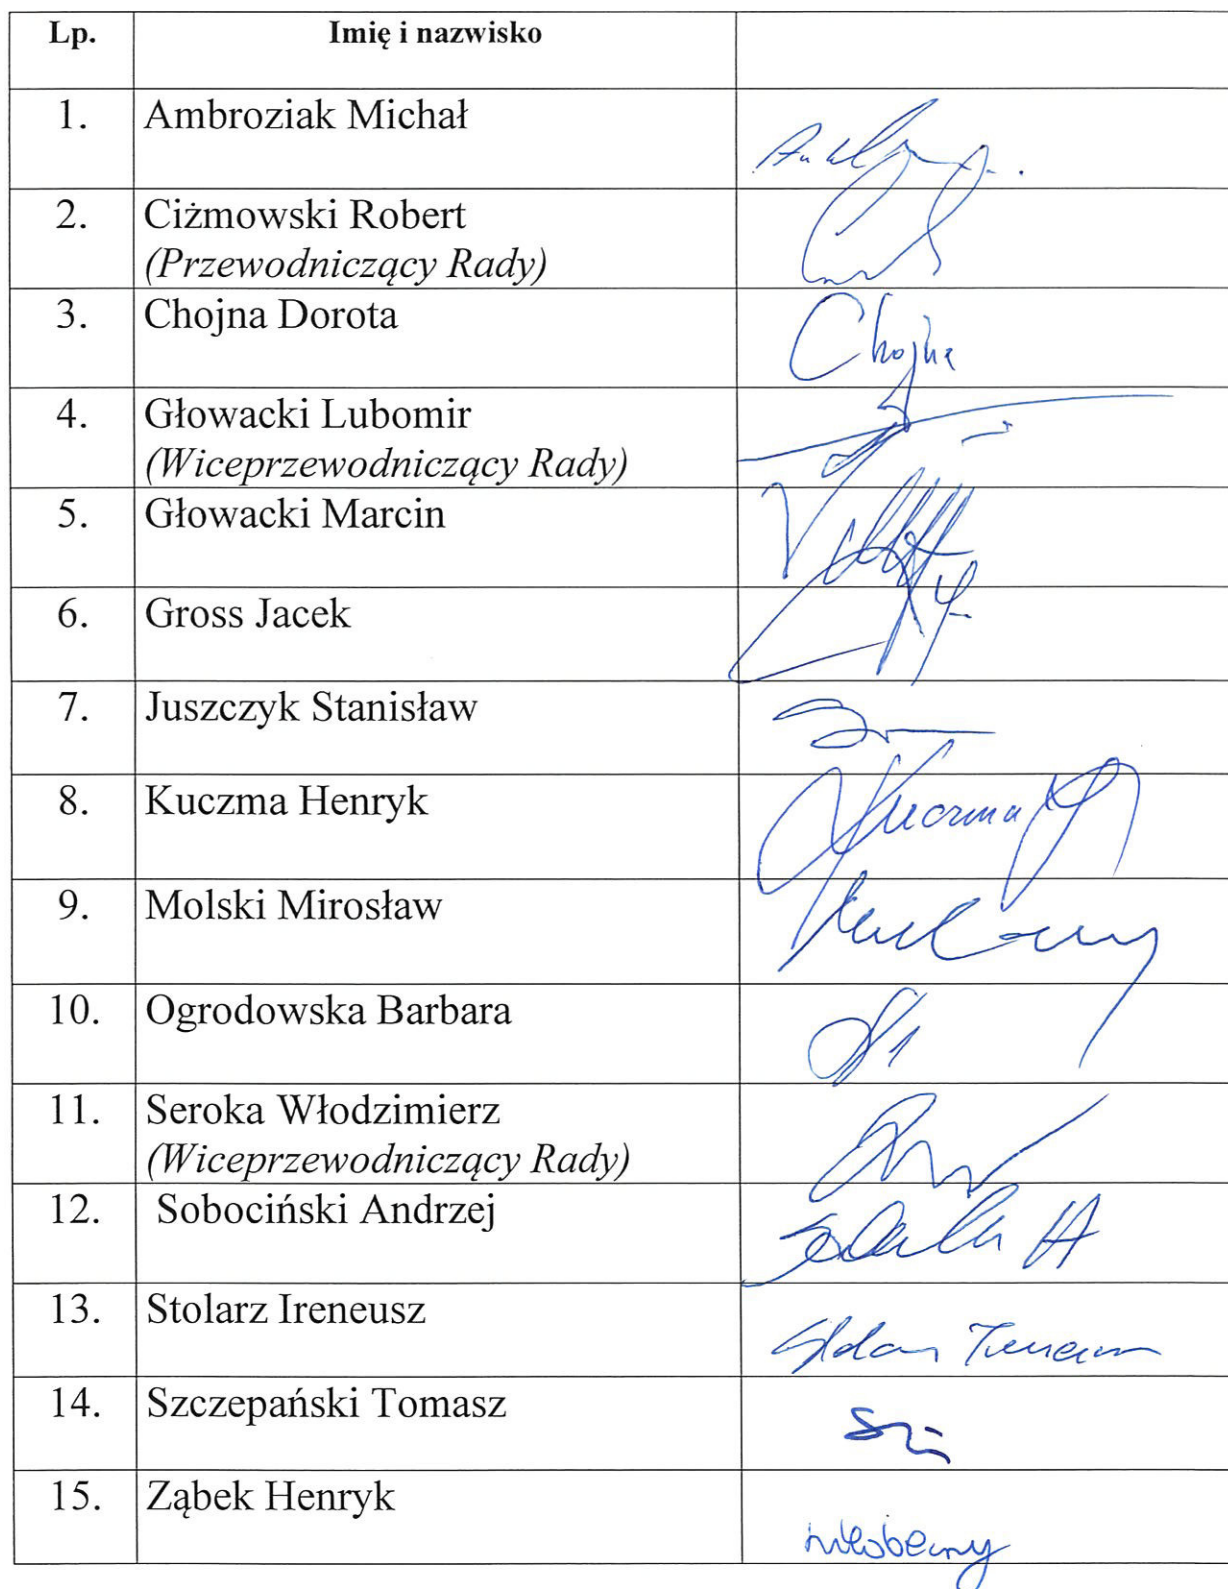 Lp. Imię i nazwisko
1. Ambroziak Michał
2. Ciżmowski Robert
(Przewodniczący Rady)
3. Chojna Dorota Chojna
4. Głowacki Lubomir
(Wiceprzewodniczący Rady)
5. Głowacki Marcin
6. Gross Jacek
7. Juszczyk Stanisław
8. Kuczma Henryk Kuczma
9. Molski Mirosław
10. Ogrodowska Barbara
11. Seroka Włodzimierz
(Wiceprzewodniczący Rady)
12. Sobociński Andrzej
13. Stolarz Ireneusz
14. Szczepański Tomasz
15. Ząbek Henryk nieobecny